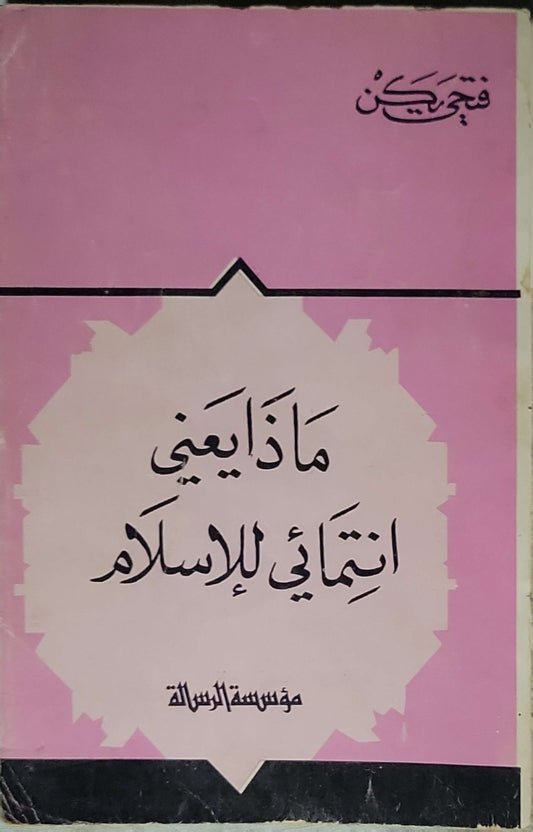 فتحي يكن
مَاذَا يَعني
انتِمَائي للإسلَام
مؤسسة الرسالة